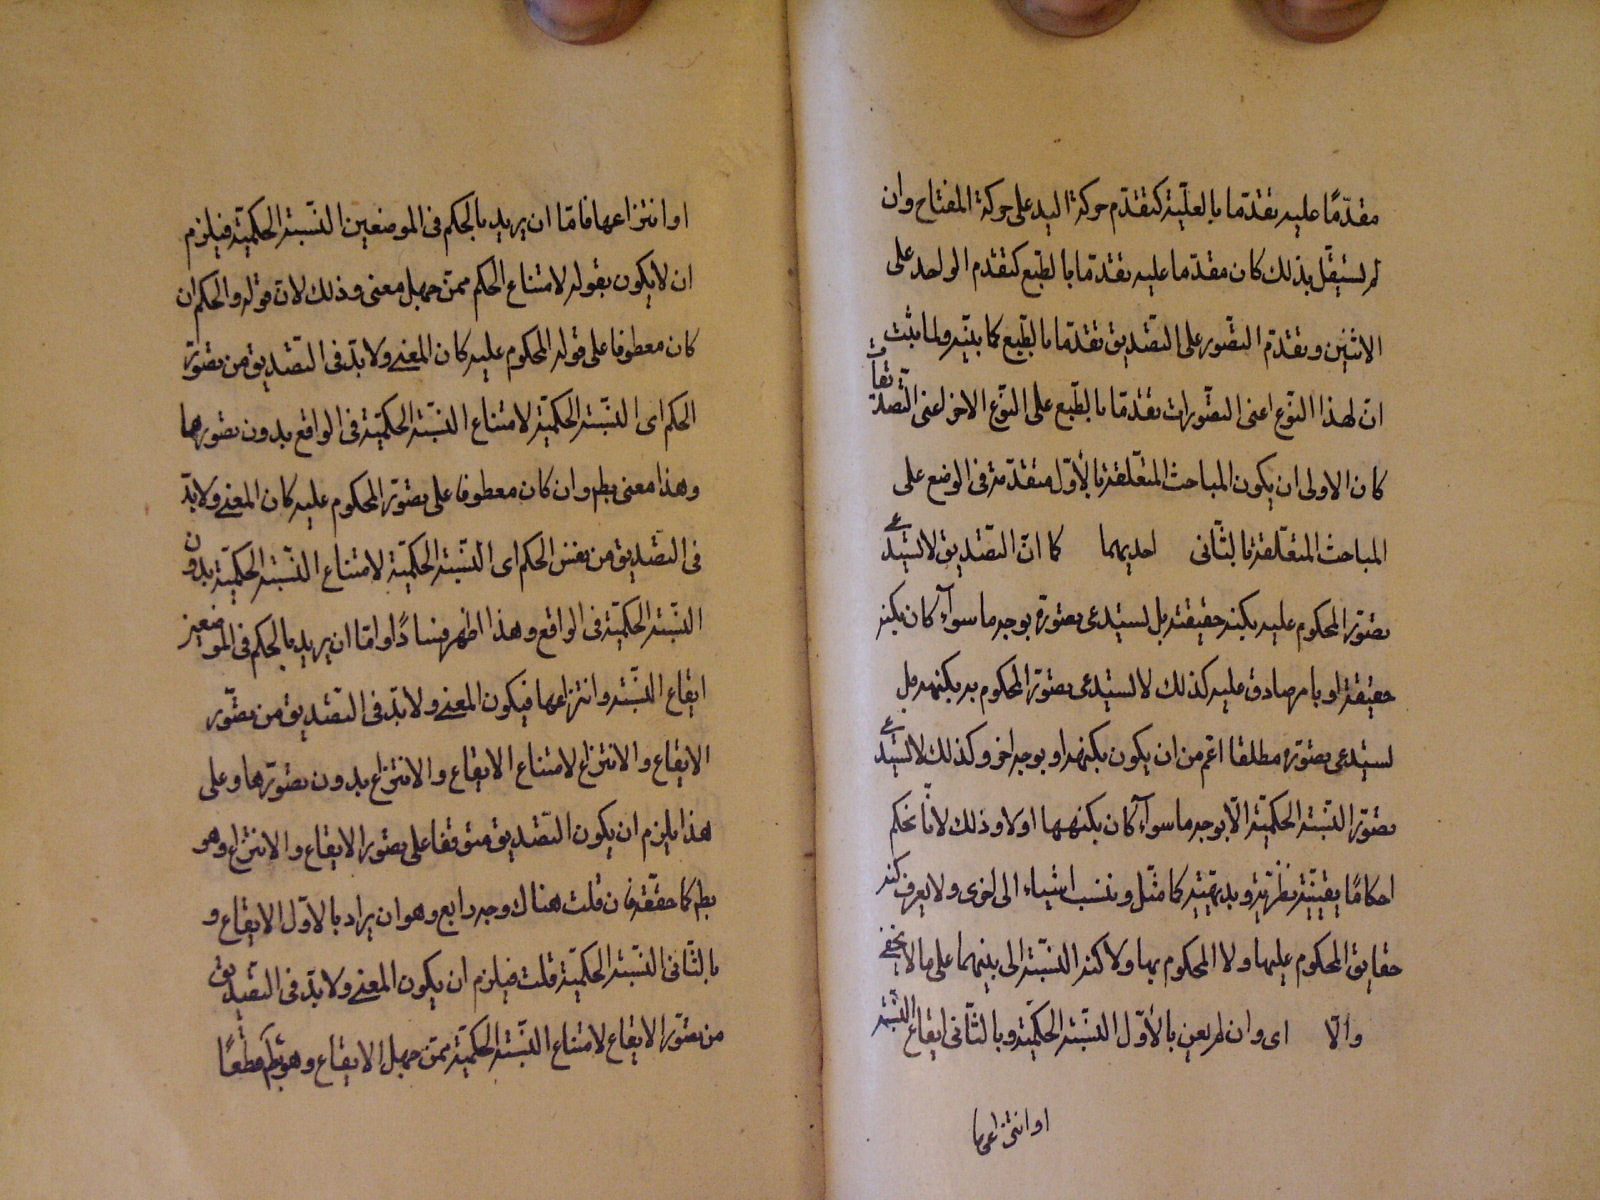 مقدّمًا عليه تقدّما بالعليّة كتقدّم حركة اليد على حركة المفتاح وان
لم يستقل بذلك كان مقدّما عليه تقدّما بالطبع كتقدم الواحد على
الاثنين وتقدّم التصّور على التصّديق تقدّما بالطّبع كما بيّنه ولما ثبت
انّ لهذا النوّع اعنى التصّورات تقدّما بالطّبع على النوّع الاخر اعنى التّصديقات
كان الاولى ان يكون المباحث المتعّلقة بالأوّل متقدّمة فى الوضع على
المباحث المتعّلقة بالثّانى احديهما كما انّ التصّديق لا يستدعى
تصوّر المحكوم عليه بكنه حقيقته بل يستدعى تصوّره بوجه ما سوآء كان بكنه
حقيقته او بامر صادق عليه كذلك لا يستدعى تصوّر المحكوم به بكنهه بل
يستدعى تصوّره مطلقا اعّم من ان يكون بكنهه او بوجه اخر وكذلك لا يستدعى
تصوّر النسّبة الحكميّة الّا بوجه ما سوآء كان بكنهها او لا وذلك لانّا نحكم
احكامًا يقينيّة نظريّة وبديهيّة كما مثّل وننسب اشياء الى اخرى ولا يعرف كنه
حقايق المحكوم عليها ولا المحكوم بها ولا كنه النسّبة الى بينهما على ما لا يخفى
والّا اى وان لم يعن بالأوّل النسّبة الحكميّة وبالثّانى ايقاع النسّبة
او انتزاعها
او انتزاعها فامّا ان يريد بالحكم فى الموضعين النسّبة الحكميّة فيلزم
ان لا يكون بقوله لامتناع الحكم ممّن جهل معنى وذلك لانّ قوله والحكم ان
كان معطوفا على قوله المحكوم عليه كان المعنى ولا بدّ فى التصّديق من تصوّر
الحكم اى النسّبة الحكميّة لامتناع النسّبة الحكميّة فى الواقع بدون تصورها
وهذا معنى بطم وان كان معطوفا على تصوّر المحكوم عليه كان المعنى ولا بدّ
فى التصّديق من نفس الحكم اى النسّبة الحكميّة لامتناع النسّبة الحكميّة بدون
النسّبة الحكميّة فى الواقع وهذا اظهر فسادًا وامّا ان يريد بالحكم فى الموضعين
ايقاع النسّبة وانتزاعها فيكون المعنى ولا بدّ فى التصّديق من تصّور
الايقاع والانتزاع لامتناع الايقاع والانتزاع بدون تصوّرها وعلى
هذا يلزم ان يكون التصّديق متوقفا على تصوّر الايقاع والانتزاع وهو
بطم كما حقّقه فان قلت هناك وجه رابع وهو ان يراد بالاوّل الايقاع و
بالثّانى النسّبة الحكميّة قلت فيلزم ان يكون المعنى ولا بدّ فى التصّديق
من تصوّر الايقاع لامتناع النسّبة الحكميّة ممّن جهل الايقاع وهو بطم قطعًا